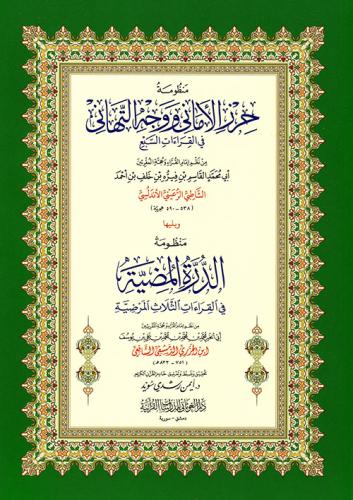 منظومة
حرز الأماني ووجه التهاني
في القراءات السبع
من نظم إمام القراء وحجة المقرئين
أبي محمد القاسم بن فيره بن خلف بن أحمد
الشاطبي الرعيني الأندلسي
(٥٣٨ - ٥٩٠ هجرية)
ويليها
منظومة
الدرة المضية
في القراءات الثلاث المرضية
أبي الخير محمد بن محمد بن محمد بن علي بن يوسف
ابن الجزري الدمشقي الشافعي
(٧٥١ - ٨٣٣ هـ)
د. أيمن رشدي سويد
دار الغوثاني للدراسات القرآنية
دمشق - سورية